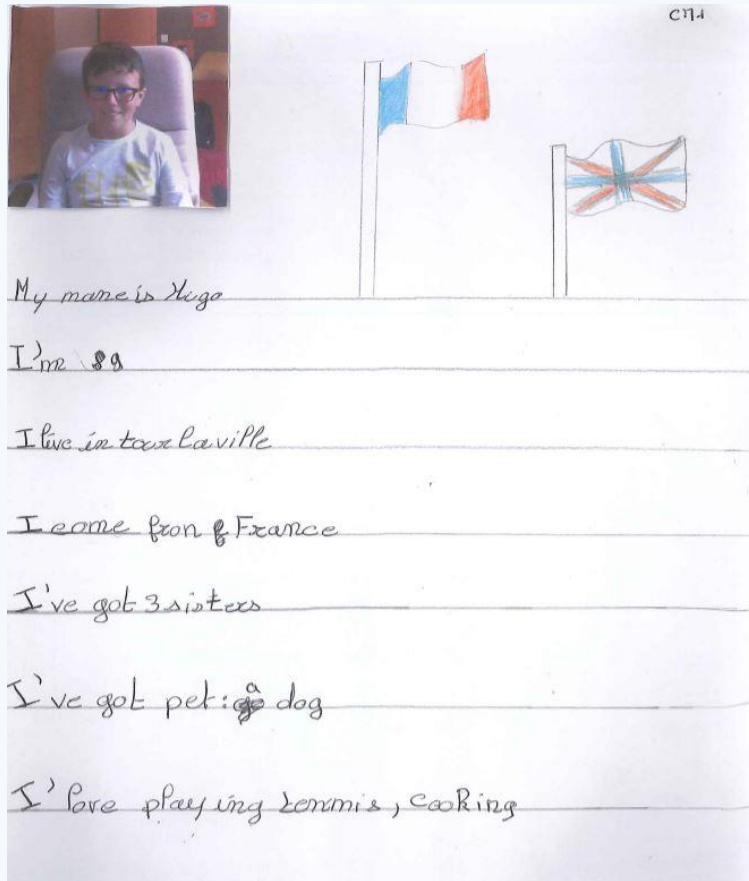 CM1
My mane is Hugo
I'm 9
I live in tourlaville
I come fron France
I've got 3 sisters
I've got pet: a dog
I' love playing tennis, cooking